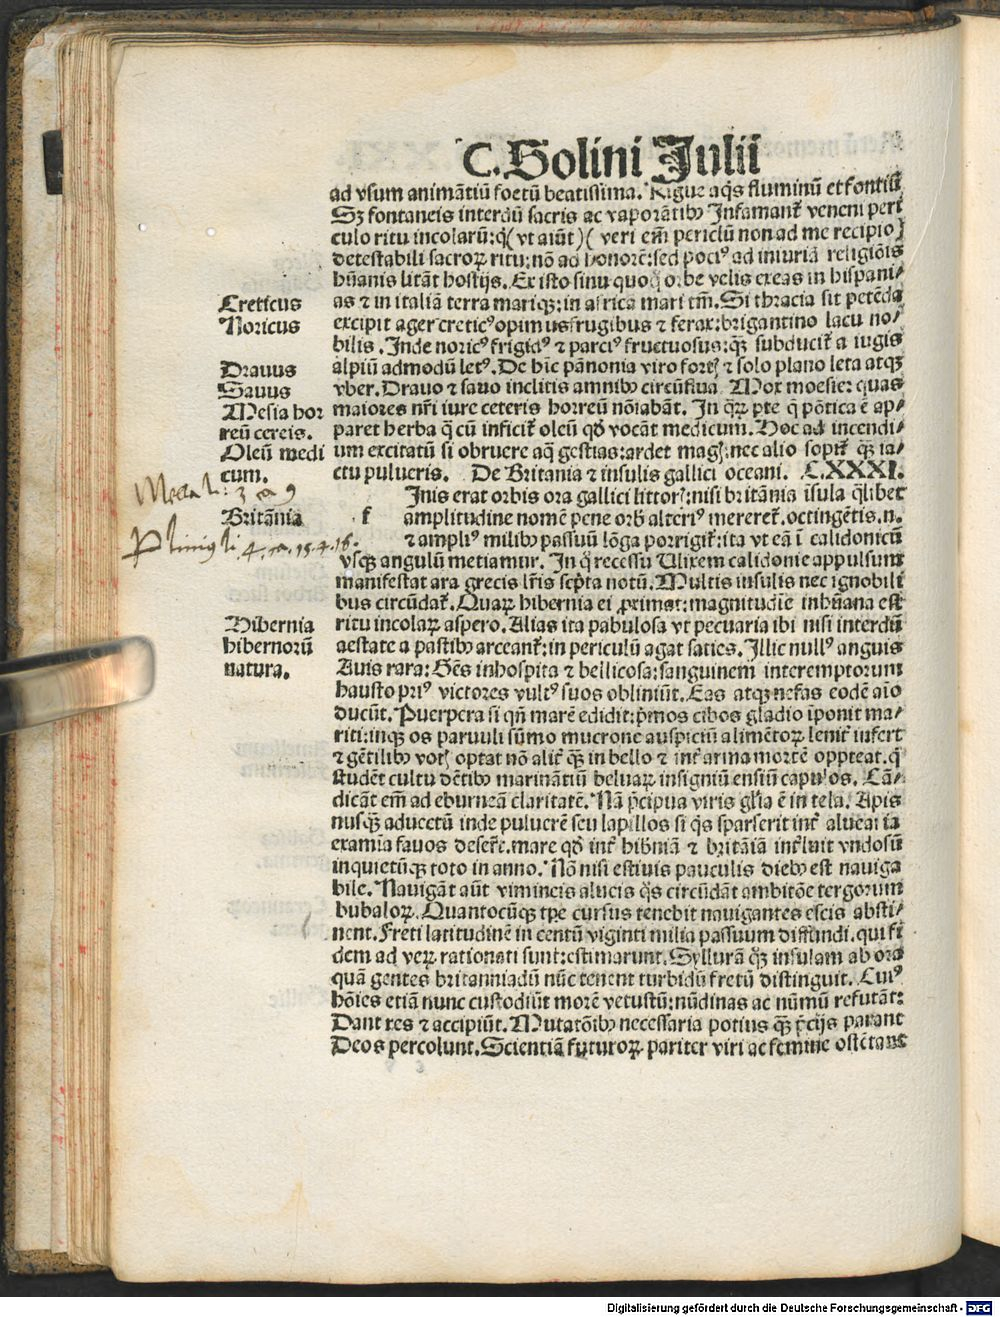 C. Solini Julii
ad vsum animātiū foetū beatissima. Rigue aq̄s fluminū et fontiū
Sꝫ fontaneis interdū sacris ac vaporātibꝰ Infamant᷑ veneni peri
culo ritu incolarū: q̄ (vt aiūt) ( veri em̄ periclū non ad me recipio)
detestabili sacroꝝ ritu: nō ad honorē: sed pociꝰ ad iniuriā religiōis
hūanis litāt hostijs. Ex isto sinu quoqꝫ orbe velis exeas in hispani/
Creticus
as ⁊ in italiā terra mariqꝫ: in africa mari tm̄. Si thracia sit petēda
Noricus
excipit ager creticꝰ opimus frugibus ⁊ ferax: brigantino lacu no/
bilis. Inde noricꝰ frigidꝰ ⁊ parciꝰ fructuosus: qꝫ subducit᷑ a iugis
Drauus
alpiū admodū letꝰ. De hīc pānonia viro fortꝭ ⁊ solo plano leta atqꝫ
Sauus
vber. Drauo ⁊ sauo inclitis amnibꝰ circūflua. Mox moesie: quas
Mesia hor
maiores nr̄i iure cereris horreū nōiabāt. In qꝝ pte q̄ pōtica ē ap/
reū cereis.
paret herba q̄ cū inficit᷑ oleū qd̄ vocāt medicum. Hoc ad incendi/
Oleū medi
um excitatū si obruere aq̄ gestias: ardet magꝭ: nec alio sopit᷑ qꝫ ia/
cum.
ctu pulueris. De Britania ⁊ insulis gallici oceani. C.XXXI.
Mela li: 3 ca 9
Inis erat orbis ora gallici littorꝭ: nisi britānia īsula q̄libet
Britānia
f amplitudine nomē pene orbꝭ alteriꝰ mereret᷑. octingētis. n.
Pliniꝰ li. 4. ca. 15. 4. 16.
⁊ ampliꝰ milibꝰ passuū lōga porrigit᷑: ita vt eā ī calidonicū
vsqꝫ angulū metiamur. In q̄ recessu Ulixem calidonie appulsum
manifestat ara grecis lr̄is scp̄ta notū. Multis insulis nec ignobili
bus circūdat᷑. Quaꝝ hibernia ei ꝓximat: magnitudīe inhūana est
Hibernia
ritu incolaꝝ aspero. Alias ita pabulosa vt pecuaria ibi nisi interdū
hibernorū
aestate a pastibꝰ arceant᷑: in periculū agat saties. Illic nullꝰ anguis
natura.
Auis rara: Gēs inhospita ⁊ bellicosa: sanguinem interemptorum
hausto priꝰ victores vultꝰ suos obliniūt. Fas atqꝫ nefas eodē aīo
ducūt. Puerpera si qn̄ marē edidit: p̄mos cibos gladio īponit ma/
riti: inqꝫ os paruuli sūmo mucrone auspiciū alimētoꝝ lenit᷑ infert
⁊ gētilibꝰ votꝭ optat nō alit᷑ qꝫ in bello ⁊ int᷑ arma mortē oppteat. q̄
studēt cultu dētibꝰ marinātiū beluaꝝ insigniū ensiū capulos. Cā/
dicāt em̄ ad eburneā claritatē. Nā p̄cipua viris gl̄ia ē in tela. Apis
nusqꝫ aduectū inde puluerē seu lapillos si q̄s sparserit int᷑ aluearia
examīa fauos deserēt. mare qd̄ int᷑ hibn̄iā ⁊ britāiā int᷑luit vndosū
inquietūqꝫ toto in anno. Nō nisi estiuis pauculis diebꝰ est nauiga
bile. Nauigāt aūt vimineis alueis q̄s circūdāt ambitōe tergorum
bubaloꝝ. Quantocūqꝫ tp̄e cursus tenebit nauigantes escis absti/
nent. Freti latitudinē in centū viginti milia passuum diffundi. qui fi
dem ad veꝝ rationati sunt: estimarunt. Syllurā qꝫ insulam ab ora
quā gentes britanniadū nūc tenent turbidū fretū distinguit. Cuiꝰ
hōies etiā nunc custodiūt morē vetustū: nūdinas ac nūmū refutāt:
Dant res ⁊ accipiūt. Mutatōibꝰ necessaria potius qꝫ p̄cijs parant
Deos percolunt. Scientiā futuroꝝ pariter viri ac femine ostētant
Digitalisierung gefördert durch die Deutsche Forschungsgemeinschaft - DFG